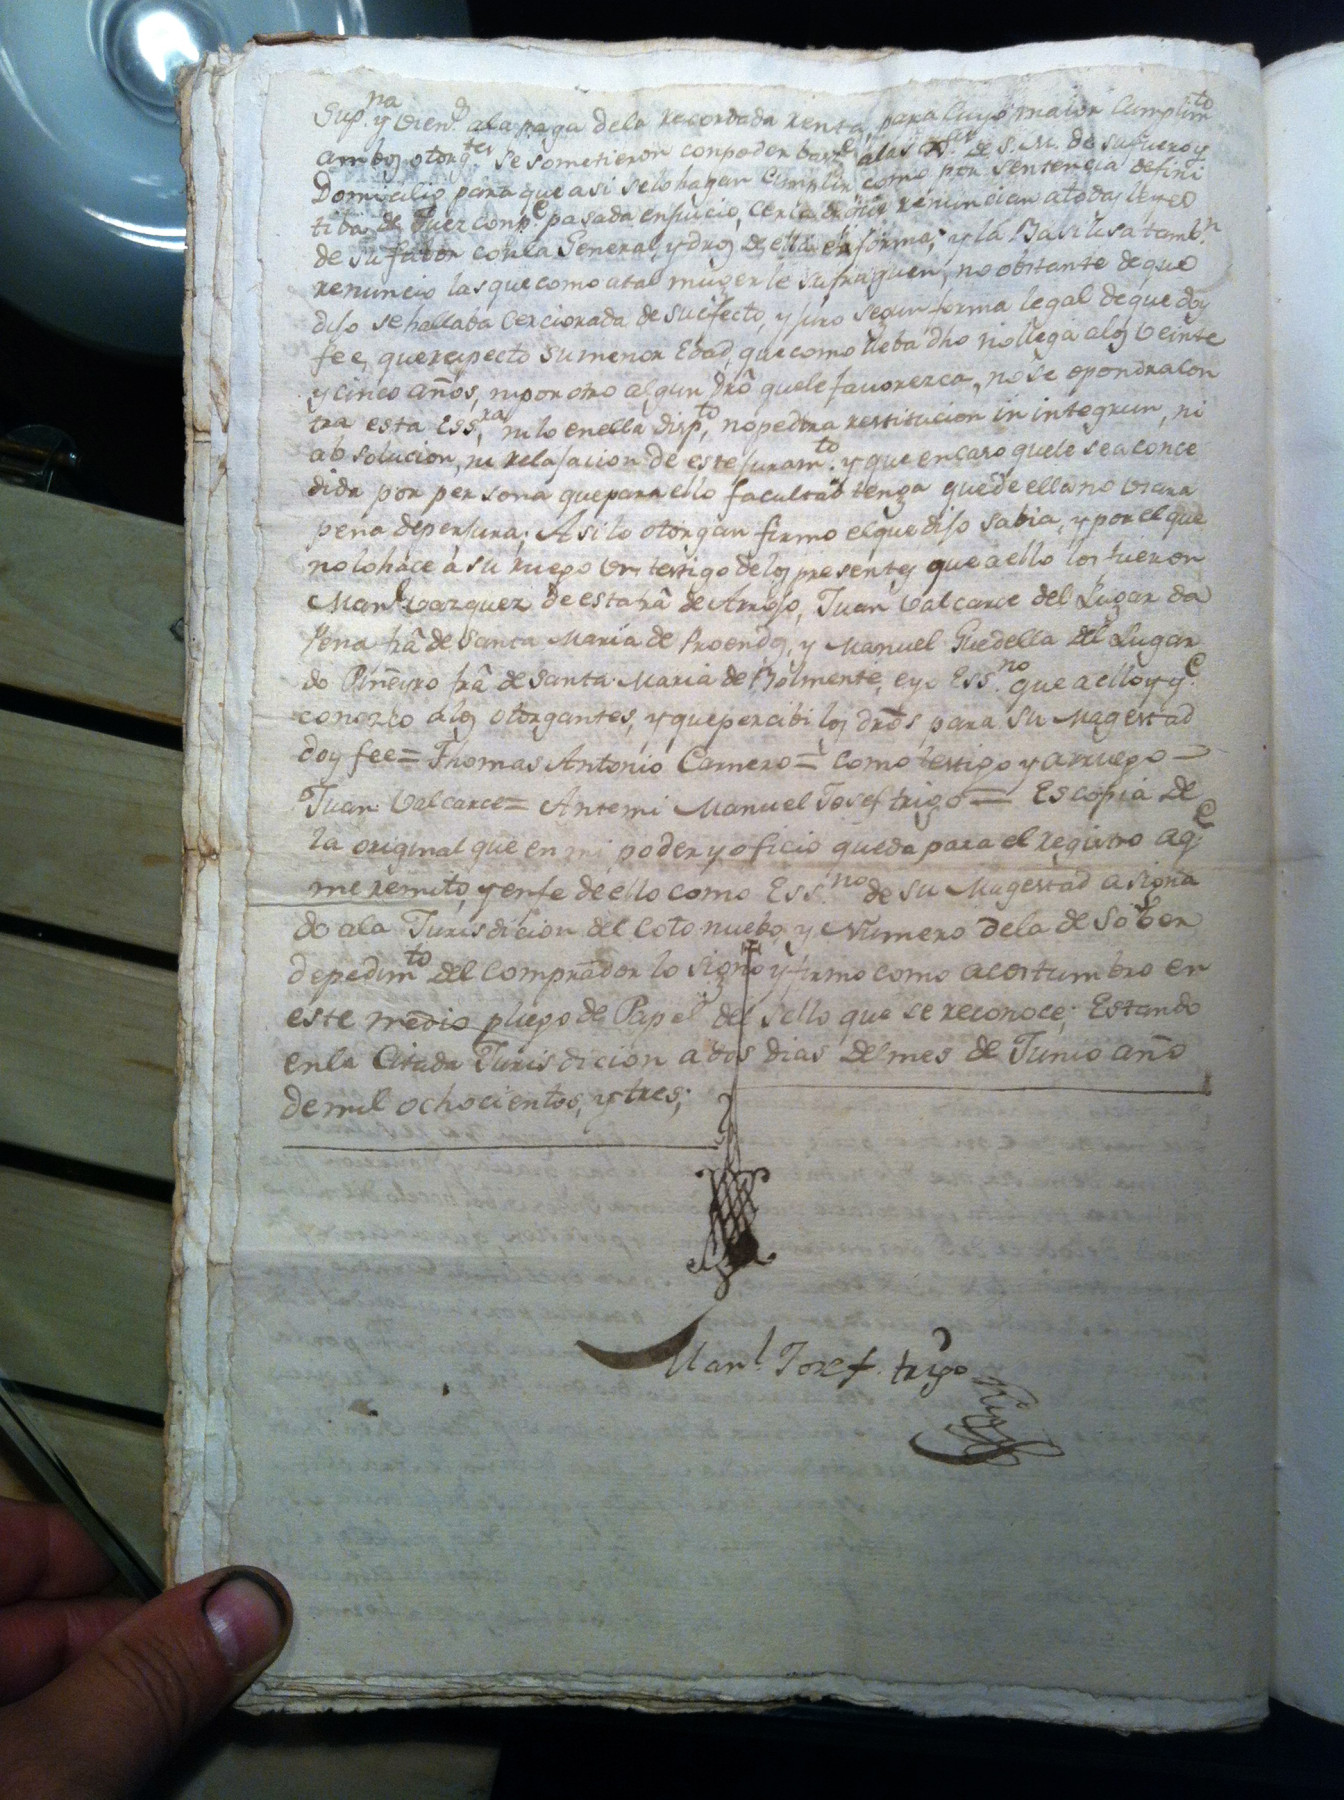 Sup.na y vien.s ala paga dela recordada renta, para cuyo maior Cumplim.to
ambos otorg.tes se sometieron con poder bast.e alas de S. M. de su fuero y
Domicilio para que asi selo hagan Cumplir como por Sentencia defini
tiba de Juez Conp.e pasada en juicio, cerca renuncian atodas leyes
de su fabor conla General, y dros de ella en forma; y la Basilisa tamb.n
renuncio las que como atal muger le sufraguen, no obstante de que
dijo se hallaba Cerciorada de su efecto, y juro segun forma legal de que doy
fee, que respecto su menor Edad, que como lleba dho no llega alos Veinte
y cinco años, ni por otro algun drô quele faborezca, no se opondra Con
tra esta Ess.ra, ni lo enella disp.to, no pedira restitucion in integrun, ni
absolucion, ni relajacion de este juram.to y que en caso quele sea conce
dida por persona que para ello facultad tenga que de ella no Usara
pena de perjura; Asi lo otorgan firmo el que dijo sabia, y por el que
no lo hace à su ruego Un testigo delos presentes que a ello los fueron
Man.l Vazquez de esta frâ de Arrojo, Juan Valcarce del Lugar da
Pena frâ de Santa Maria de Proendos, y Manuel Guedella del Lugar
do Piñeyro frâ de Santa Maria de Bolmente, e yo Ess.no que a ello y y.e
conozco alos otorgantes, y que percibi los drôs para Su Magestad
doy fee = Thomas Antonio Carnero = Como testigo y a ruego =
Juan Valcarce = Antemi Manuel Josef trigo = Es copia de
la original que en mi poder y oficio queda para el registro aq.e
me remito, y enfe de ello como Ess.no de su Magestad asigna
do ala Jurisdicion del Coto nuebo, y Número dela de Sober
de pedim.to del Comprador lo signo y firmo como acostumbro en
este medio pliego de Papel del sello que se reconoce; Estando
enla Citada Jurisdicion a dos dias del mes de Junio año
de mil ochocientos, y tres;
Man.l Josef trigo